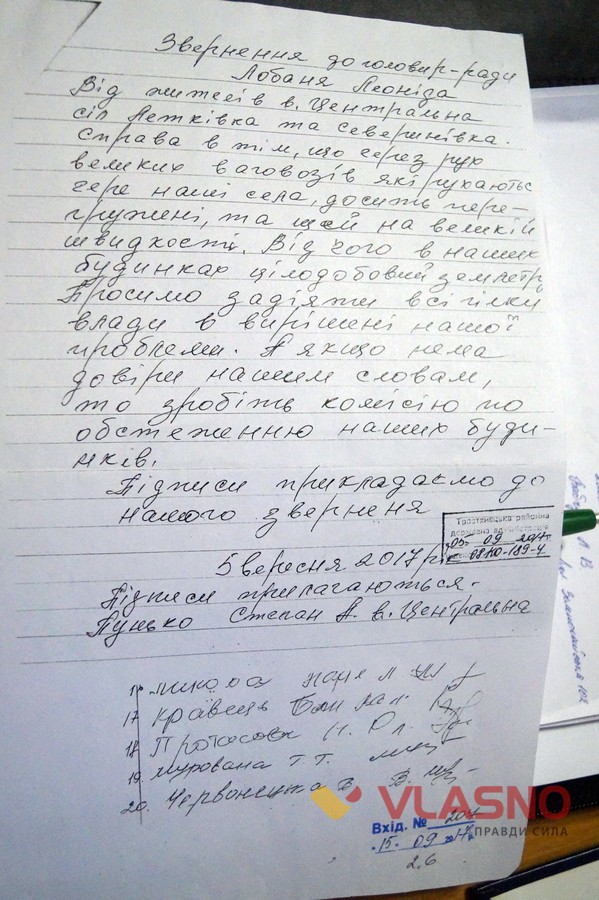 Звернення до голови р-ради
Лобаня Леоніда
Від жителів в. Центральна
сіл Летківка та Севернівка.
Справа в тім, що через рух
великих ваговозів які рухають
чере наші села, досить пере-
гружені, та щей на великій
швидкості. Від чого в наших
будинках цілодобовий землетр
Просимо задіяти всі гілки
влади в вирішені нашої
проблеми. А якщо нема
довіри нашим словам,
то зробіть комісію по
обстеженню наших буди-
нків.
Підписи прикладаємо до
нашого звереня
Тростянецька районна
державна адміністрація
05 09 2017
08.10-189-4
5 вересня 2017 р
Підписи прилагаються.
Лунько Степан А. в. Центральна
17 Кравець
18.
19. Мурована Т. Т.
20.
VLASNO
ПРАВДИ СИЛА
Вхід. № 204
15. 09 2017
2.6